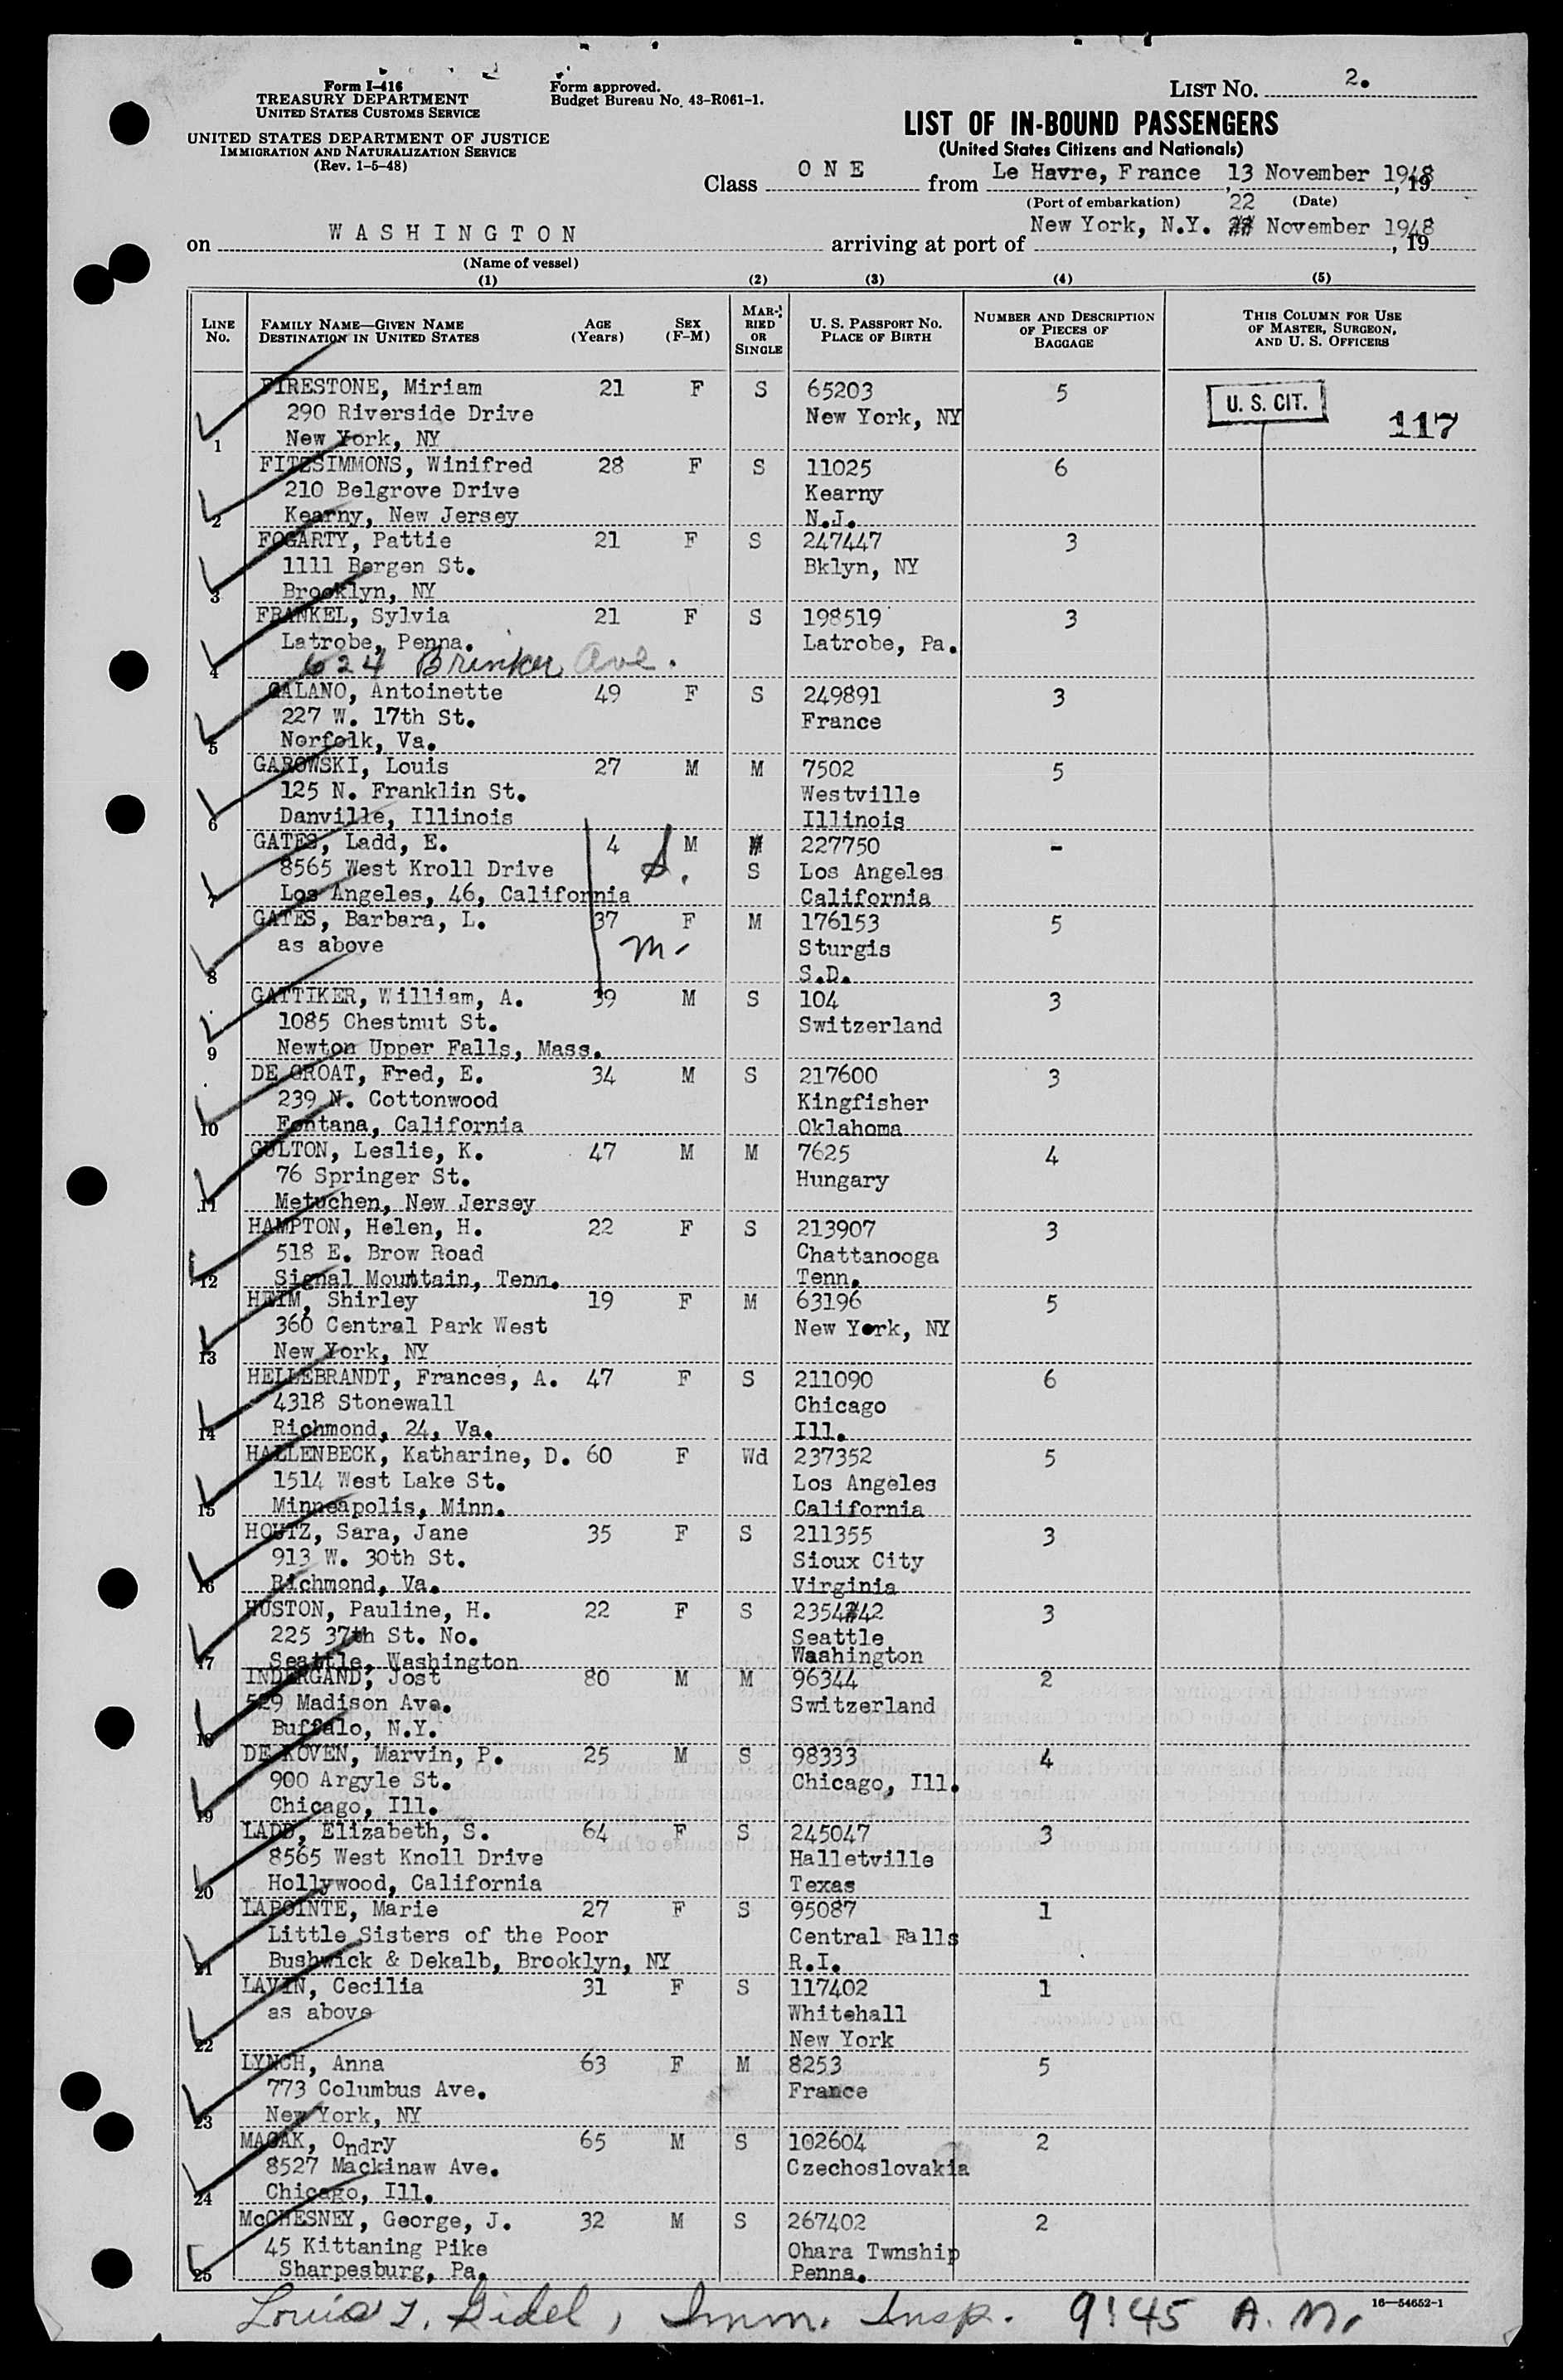 Form I-416
TREASURY DEPARTMENT
UNITED STATES CUSTOMS SERVICE
UNITED STATES DEPARTMENT OF JUSTICE
IMMIGRATION AND NATURALIZATION SERVICE
(Rev. 1-5-48)
Form approved.
Budget Bureau No. 43-R061-1.
LIST No. 2.
LIST OF IN-BOUND PASSENGERS
(United States Citizens and Nationals)
Class O N E from Le Havre, France 13 November 1948, 19
(Port of embarkation) 22 (Date)
on W A S H I N G T O N arriving at port of New York, N.Y. November 1948, 19
(Name of vessel)
(1) (2) (3) (4) (5)
LINE No. FAMILY NAME—GIVEN NAME DESTINATION IN UNITED STATES AGE (Years) SEX (F-M) MARRIED OR SINGLE U. S. PASSPORT NO. PLACE OF BIRTH NUMBER AND DESCRIPTION OF PIECES OF BAGGAGE THIS COLUMN FOR USE OF MASTER, SURGEON, AND U. S. OFFICERS
FIRESTONE, Miriam 21 F S 65203 5 U. S. CIT. 117
290 Riverside Drive New York, NY
1 New York, NY
FITZSIMMONS, Winifred 28 F S 11025 6
210 Belgrove Drive Kearny
2 Kearny, New Jersey N.J.
FOGARTY, Pattie 21 F S 247447 3
1111 Bergen St. Bklyn, NY
3 Brooklyn, NY
FRANKEL, Sylvia 21 F S 198519 3
Latrobe, Penna. Latrobe, Pa.
4 624 Brinker Ave.
GALANO, Antoinette 49 F S 249891 3
227 W. 17th St. France
5 Norfolk, Va.
GABOWSKI, Louis 27 M M 7502 5
125 N. Franklin St. Westville
6 Danville, Illinois Illinois
GATES, Ladd, E. 4 S. M M 227750 -
8565 West Kroll Drive S Los Angeles
7 Los Angeles, 46, California California
GATES, Barbara, L. 37 F M 176153 5
as above m- Sturgis
8 S.D.
GATTIKER, William, A. 39 M S 104 3
1085 Chestnut St. Switzerland
9 Newton Upper Falls, Mass.
DE GROAT, Fred, E. 34 M S 217600 3
239 N. Cottonwood Kingfisher
10 Fontana, California Oklahoma
GULTON, Leslie, K. 47 M M 7625 4
76 Springer St. Hungary
11 Metuchen, New Jersey
HAMPTON, Helen, H. 22 F S 213907 3
518 E. Brow Road Chattanooga
12 Signal Mountain, Tenn. Tenn.
HEIM, Shirley 19 F M 63196 5
360 Central Park West New York, NY
13 New York, NY
HELLEBRANDT, Frances, A. 47 F S 211090 6
4318 Stonewall Chicago
14 Richmond, 24, Va. Ill.
HALLENBECK, Katharine, D. 60 F Wd 237352 5
1514 West Lake St. Los Angeles
15 Minneapolis, Minn. California
HOUTZ, Sara, Jane 35 F S 211355 3
913 W. 30th St. Sioux City
16 Richmond, Va. Virginia
HUSTON, Pauline, H. 22 F S 2354#42 3
225 37th St. No. Seattle
17 Seattle, Washington Waahington
INDERGAND, Jost 80 M M 96344 2
529 Madison Ave. Switzerland
18 Buffalo, N.Y.
DE KOVEN, Marvin, P. 25 M S 98333 4
900 Argyle St. Chicago, Ill.
19 Chicago, Ill.
LADD, Elizabeth, S. 64 F S 245047 3
8565 West Knoll Drive Halletville
20 Hollywood, California Texas
LAPOINTE, Marie 27 F S 95087 1
Little Sisters of the Poor Central Falls
21 Bushwick & Dekalb, Brooklyn, NY R.I.
LAVIN, Cecilia 31 F S 117402 1
as above Whitehall
22 New York
LYNCH, Anna 63 F M 8253 5
773 Columbus Ave. France
23 New York, NY
MACAK, Ondry 65 M S 102604 2
8527 Mackinaw Ave. Czechoslovakia
24 Chicago, Ill.
McCHESNEY, George, J. 32 M S 267402 2
45 Kittaning Pike Ohara Twnship
25 Sharpesburg, Pa. Penna.
16—54652-1
Louis J. Gidel, Imm. Insp. 9:45 A.M.